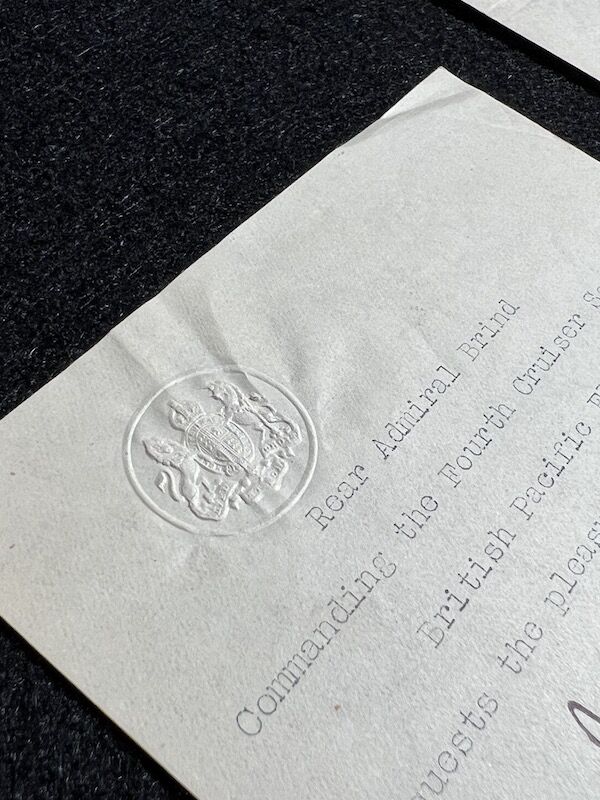 Rear Admiral Brind
Commanding the Fourth Cruiser
British Pacific
the